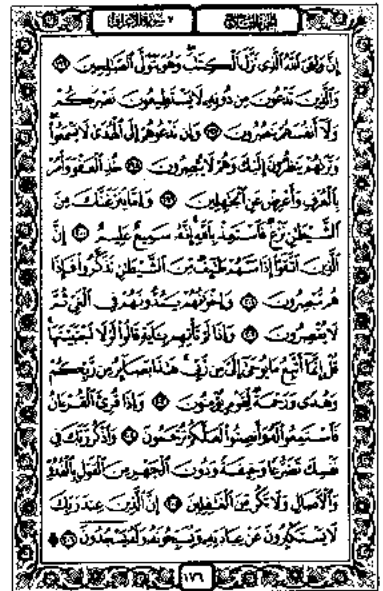 سورة الأعراف ٧
إِنَّ وَلِيِّىَ ٱللَّهُ ٱلَّذِى نَزَّلَ ٱلْكِتَٰبَ وَهُوَ يَتَوَلَّى ٱلصَّٰلِحِينَ ١٩٦
وَٱلَّذِينَ تَدْعُونَ مِن دُونِهِۦ لَا يَسْتَطِيعُونَ نَصْرَكُمْ
وَلَآ أَنفُسَهُمْ يَنصُرُونَ ١٩٧ وَإِن تَدْعُوهُمْ إِلَى ٱلْهُدَىٰ لَا يَسْمَعُوا۟
وَتَرَىٰهُمْ يَنظُرُونَ إِلَيْكَ وَهُمْ لَا يُبْصِرُونَ ١٩٨ خُذِ ٱلْعَفْوَ وَأْمُرْ
بِٱلْعُرْفِ وَأَعْرِضْ عَنِ ٱلْجَٰهِلِينَ ١٩٩ وَإِمَّا يَنزَغَنَّكَ مِنَ
ٱلشَّيْطَٰنِ نَزْغٌ فَٱسْتَعِذْ بِٱللَّهِ إِنَّهُۥ سَمِيعٌ عَلِيمٌ ٢٠٠ إِنَّ
ٱلَّذِينَ ٱتَّقَوْا۟ إِذَا مَسَّهُمْ طَٰٓئِفٌ مِّنَ ٱلشَّيْطَٰنِ تَذَكَّرُوا۟ فَإِذَا
هُم مُّبْصِرُونَ ٢٠١ وَإِخْوَٰنُهُمْ يَمُدُّونَهُمْ فِى ٱلْغَىِّ ثُمَّ
لَا يُقْصِرُونَ ٢٠٢ وَإِذَا لَمْ تَأْتِهِم بِـَٔايَةٍ قَالُوا۟ لَوْلَا ٱجْتَبَيْتَهَا
قُلْ إِنَّمَآ أَتَّبِعُ مَا يُوحَىٰٓ إِلَىَّ مِن رَّبِّى هَٰذَا بَصَآئِرُ مِن رَّبِّكُمْ
وَهُدًى وَرَحْمَةٌ لِّقَوْمٍ يُؤْمِنُونَ ٢٠٣ وَإِذَا قُرِئَ ٱلْقُرْءَانُ
فَٱسْتَمِعُوا۟ لَهُۥ وَأَنصِتُوا۟ لَعَلَّكُمْ تُرْحَمُونَ ٢٠٤ وَٱذْكُر رَّبَّكَ فِى
نَفْسِكَ تَضَرُّعًا وَخِيفَةً وَدُونَ ٱلْجَهْرِ مِنَ ٱلْقَوْلِ بِٱلْغُدُوِّ
وَٱلْـَٔاصَالِ وَلَا تَكُن مِّنَ ٱلْغَٰفِلِينَ ٢٠٥ إِنَّ ٱلَّذِينَ عِندَ رَبِّكَ
لَا يَسْتَكْبِرُونَ عَنْ عِبَادَتِهِۦ وَيُسَبِّحُونَهُۥ وَلَهُۥ يَسْجُدُونَ ۩ ٢٠٦
١٧٦